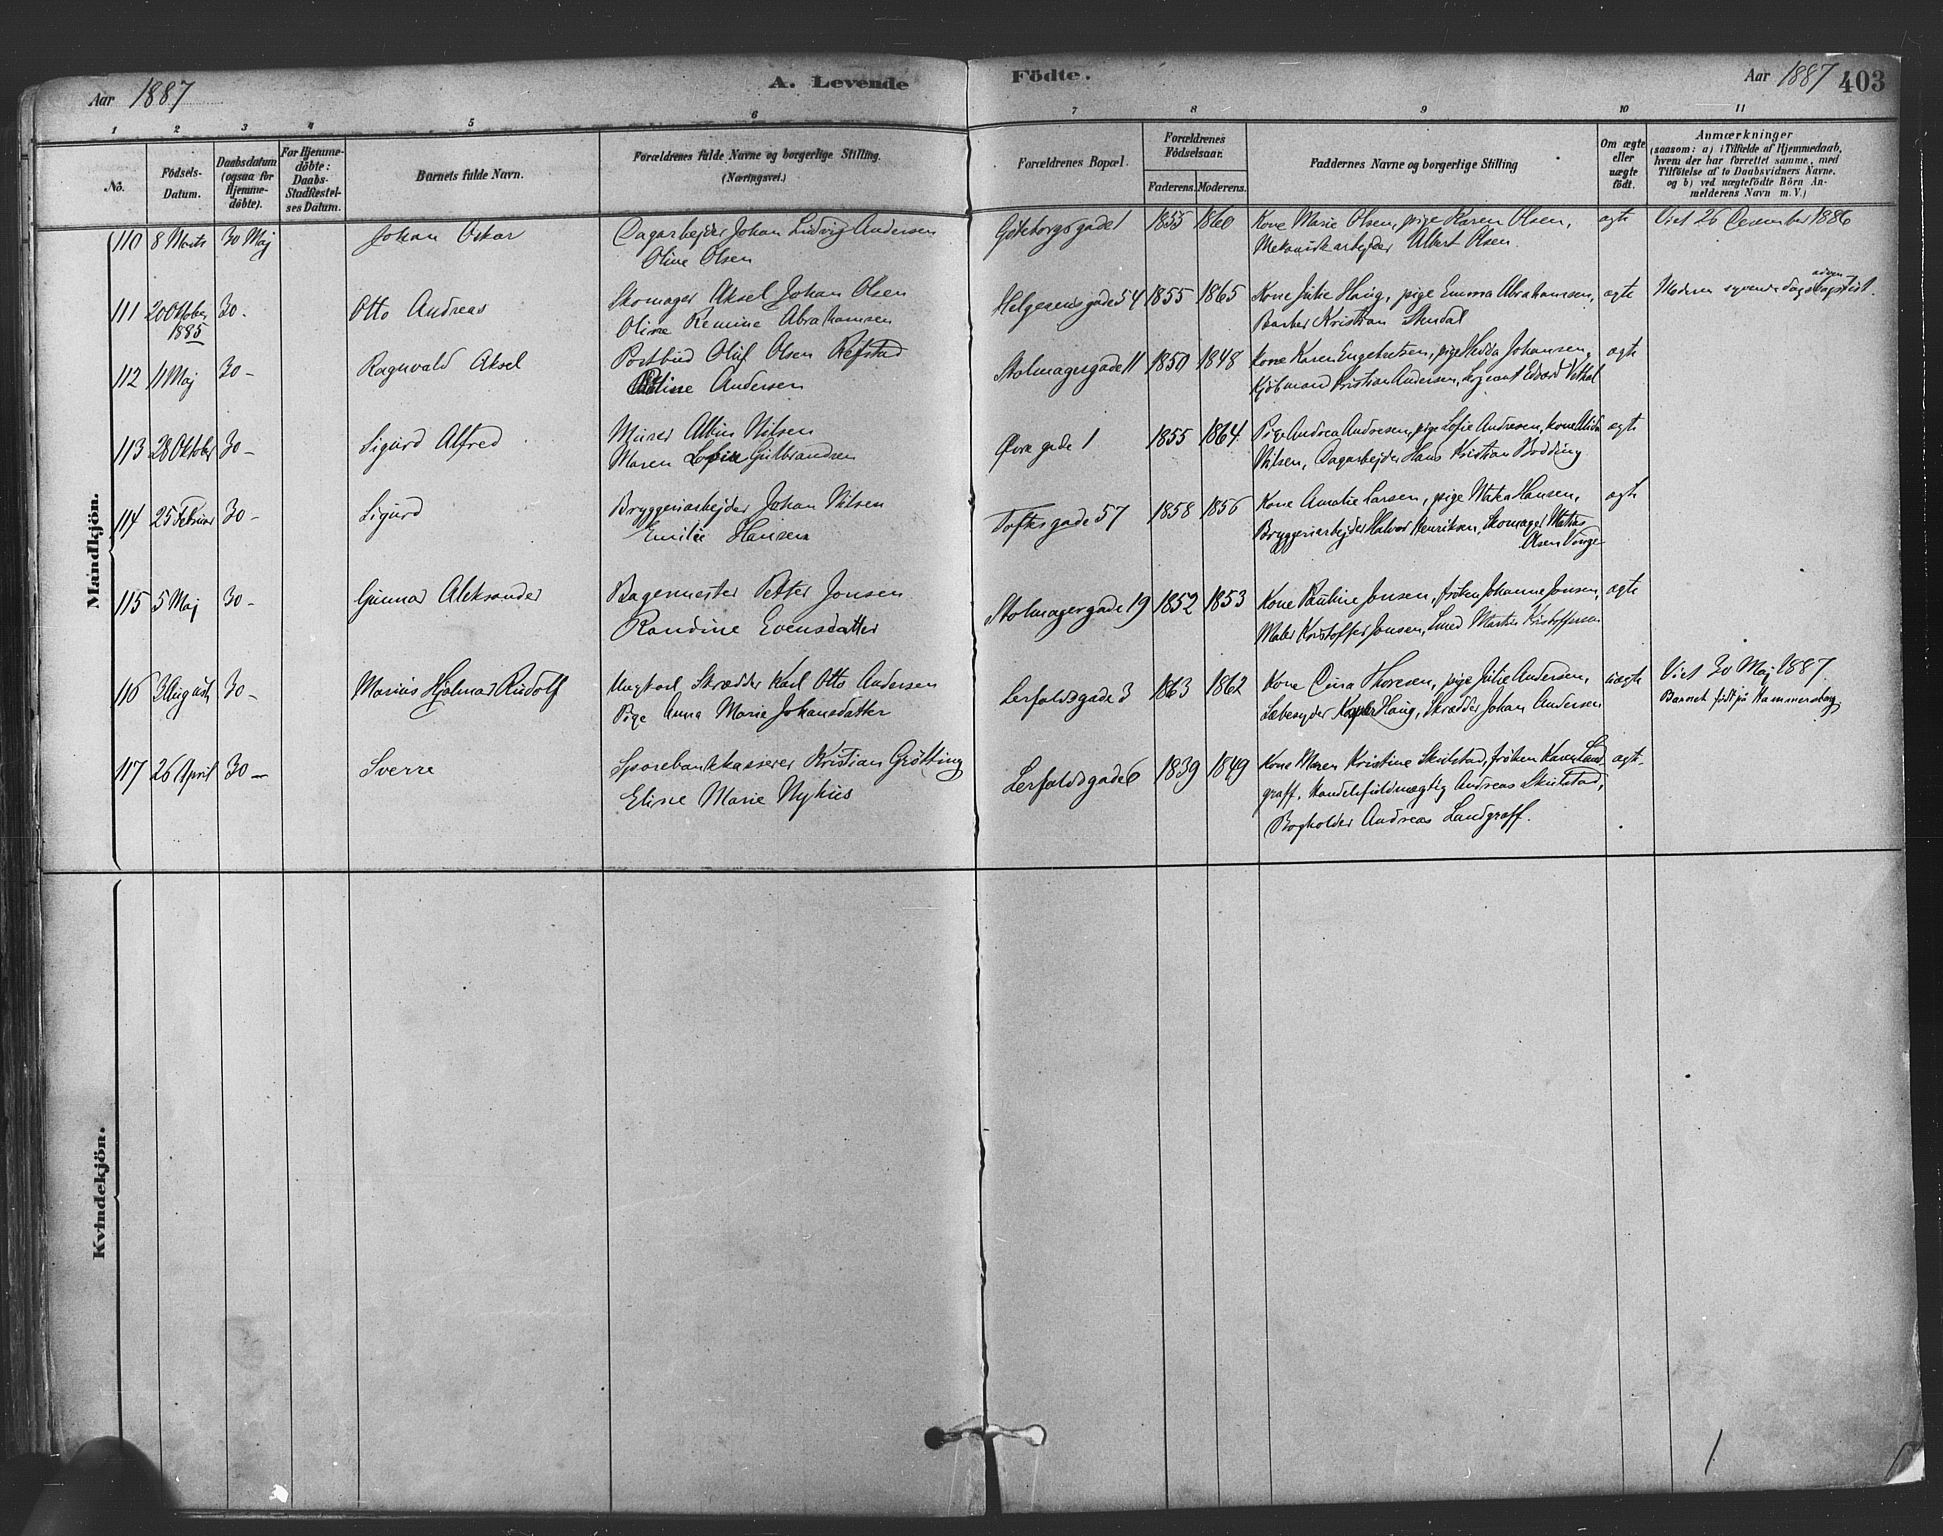 Aar 1887
A. Levende
Födte.
Aar 1887
403
1 2 3 4 5 6 7 8 9 10 11
No.
Födsels-
Datum.
Daabsdatum
(ogsaa for
Hjemme-
döbte).
For Hjemme-
döbte:
Daabs-
Stadfæstel-
ses Datum.
Barnets fulde Navn.
Forældrenes fulde Navne og borgerlige Stilling.
(Næringsvei.)
Forældrenes Bopæl.
Forældrenes
Födselsaar.
Faderens. Moderens.
Faddernes Navne og borgerlige Stilling
Om ægte
eller
uægte
födt.
Anmærkninger
(saasom: a) i Tilfælde af Hjemmedaab,
hvem der har forrettet samme, med
Tilföielse af to Daabsvidners Navne.
og b) ved uægtefödte Börn An-
melderens Navn m. V.)
Mandkjön.
110 8 Marts 30 Maj Johan Oskar Dagarbejder Johan Ludvig Andersen
Oline Olsen
Göteborgsgade 1 1855 1860 Kone Marie Olsen, pige Karen Olsen,
Mekanikarbejder Albert Olsen.
ægte Viet 26 December 1886
111 20 Oktober
1885
30 - Otto Andreas Skomager Aksel Johan Olsen
Oline Remine Abrahamsen
Helgesensgade 54 1855 1865 Kone Julie Haug, pige Emma Abrahamsen,
Barber Kristian Stendal
ægte Moderen syvendedags
112 11 Maj 30 - Ragnvald Aksel Postbud Oluf Olsen Refstad
Andersen
Stolmagergade 11 1850 1848 Kone Karen Engebretsen, pige Hedda Johansen,
Kjöbmand Kristian Andersen, Sergeant Edvard
ægte
113 28 Oktober 30 - Sigurd Alfred Murer Albin Nilsen
Maren Sofie Gulbrandsen
Övre gade 1 1855 1864 Pige Andrea Andresen, pige Sofie Andresen, kone
Nilsen, Dagarbejder Hans Kristian Bodding
ægte
114 25 Februar 30 - Sigurd Bryggeriarbejder Johan Nilsen
Emilie Hansen
Toftesgade 57 1858 1856 Kone Amalie Larsen, pige Hansen,
Bryggeriarbejder Halvor Henriksen, Skomager Matias
Olsen
ægte
115 5 Maj 30 - Gunnar Aleksander Bagermester Petter Jonsen
Randine Evensdatter
Stolmagergade 19 1852 1853 Kone Pauline Jonsen, fröken Johanne Jonsen,
Maler Kristoffer Jonsen, Smed Martin Kristoffersen
ægte
116 3 August 30 - Marius Hjalmar Rudolf Ungkarl Skrædder Karl Otto Andersen
Pige Anna Marie Johansdatter
Lerfaldsgade 3 1863 1862 Kone Thoresen, pige Julie Andersen,
Haug, Skrædder Johan Andersen
uægte Viet 30 Maj 1887.
Barnet födt på Hammersborg.
117 26 April 30 - Sverre Sparebankkasserer Kristian Grötting
Elise Marie Nyhus
Lerfaldsgade 6 1839 1849 Kone Maren Kristine Skulstad, fröken Karen Land
graff, Handelsfuldmægtig Andreas Skulstad,
Bogholder Andreas Landgraff.
ægte
Kvindekjön.